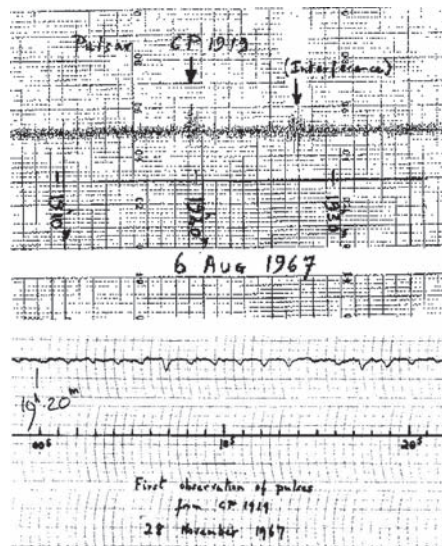 Pulsar CP 1919
(Interference)
19h10
19h20
6 AUG 1967
19h 20m
00s 10s 20s
First observation of pulses
from CP 1919
28 November 1967